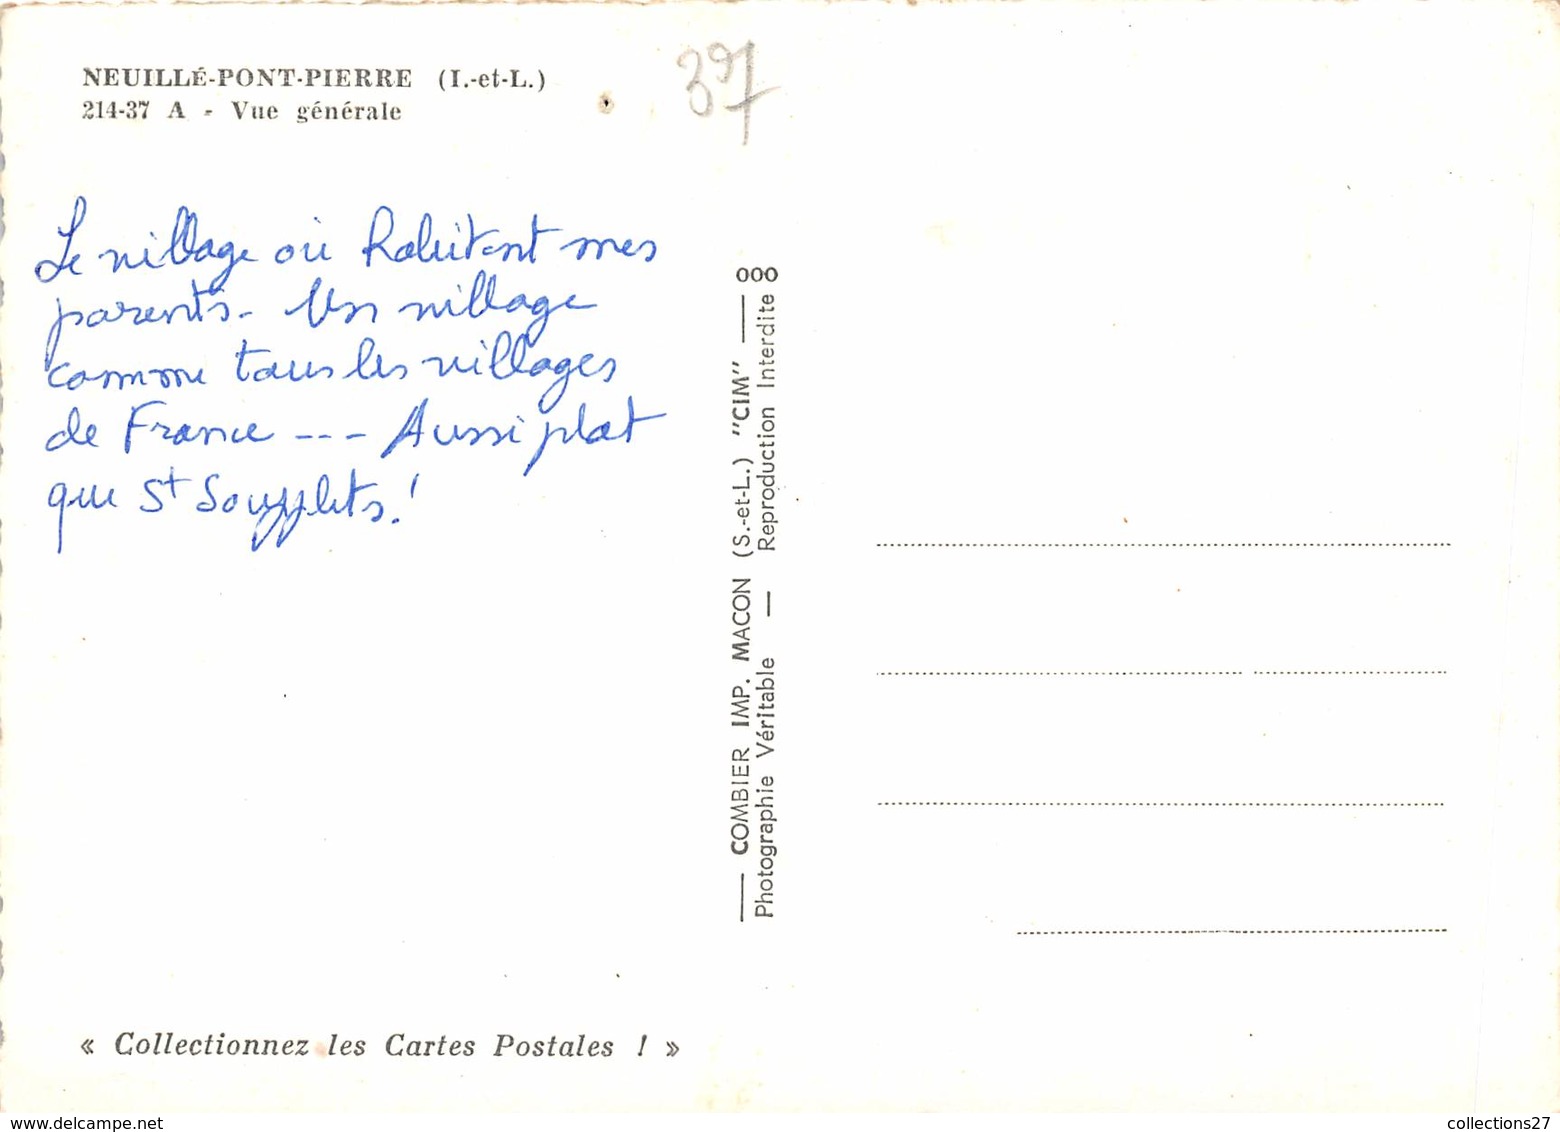 NEUILLÉ-PONT-PIERRE (I.-et-L.)
214-37 A - Vue générale
37
Le village où habitent mes
parents. Un village
comme tous les villages
de France --- Aussi plat
que St Soufflets !
COMBIER IMP. MACON (S.-et-L.) "CIM"
Photographie Véritable — Reproduction Interdite
000
« Collectionnez les Cartes Postales ! »
www.delcampe.net
collections27